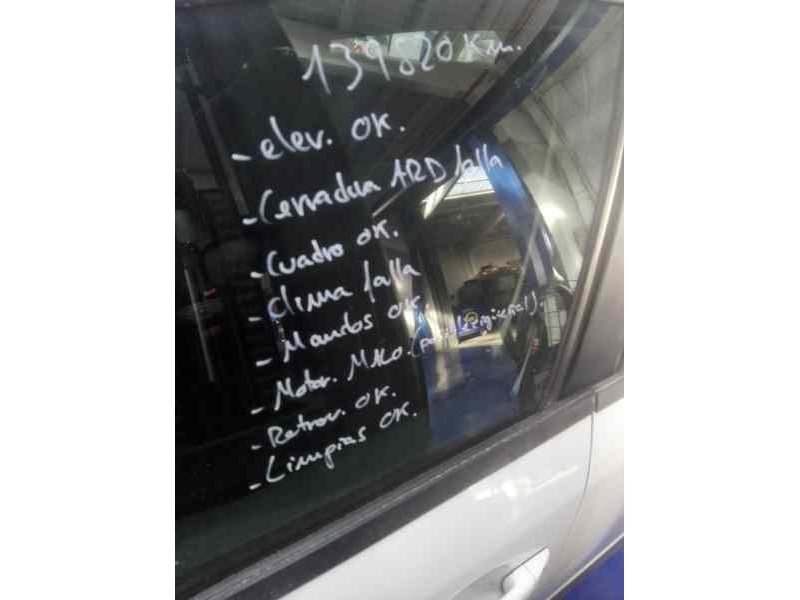 139820 Km.
- elev. OK.
- Cerradura ARD falla
- Cuadro OK.
- Clima falla
- Mandos OK
- Motor. MALO.
- Retrov. OK.
- Limpias OK.